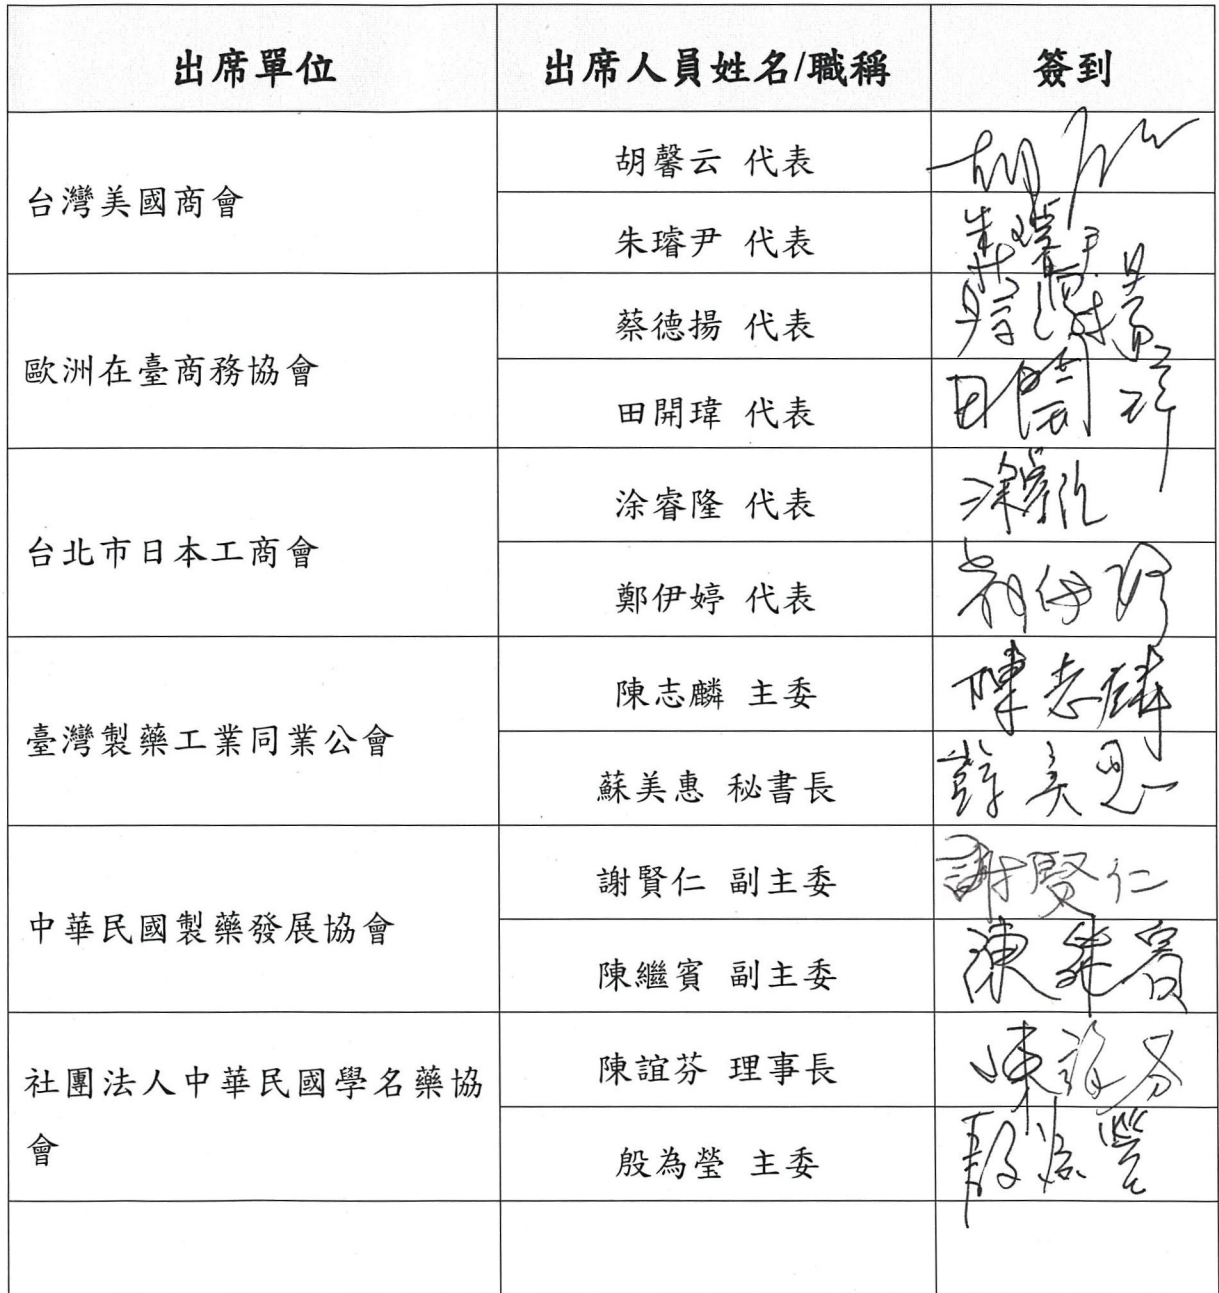 出席單位 出席人員姓名/職稱 簽到
台灣美國商會
胡馨云 代表 胡
朱璿尹 代表 朱璿尹
歐洲在臺商務協會
蔡德揚 代表 蔡德揚
田開瑋 代表 田開瑋
台北市日本工商會
涂睿隆 代表 涂睿隆
鄭伊婷 代表 鄭伊婷
臺灣製藥工業同業公會
陳志麟 主委 陳志麟
蘇美惠 秘書長 蘇美惠
中華民國製藥發展協會
謝賢仁 副主委 謝賢仁
陳繼賓 副主委 陳繼賓
社團法人中華民國學名藥協
會
陳誼芬 理事長 陳誼芬
殷為瑩 主委 殷為瑩